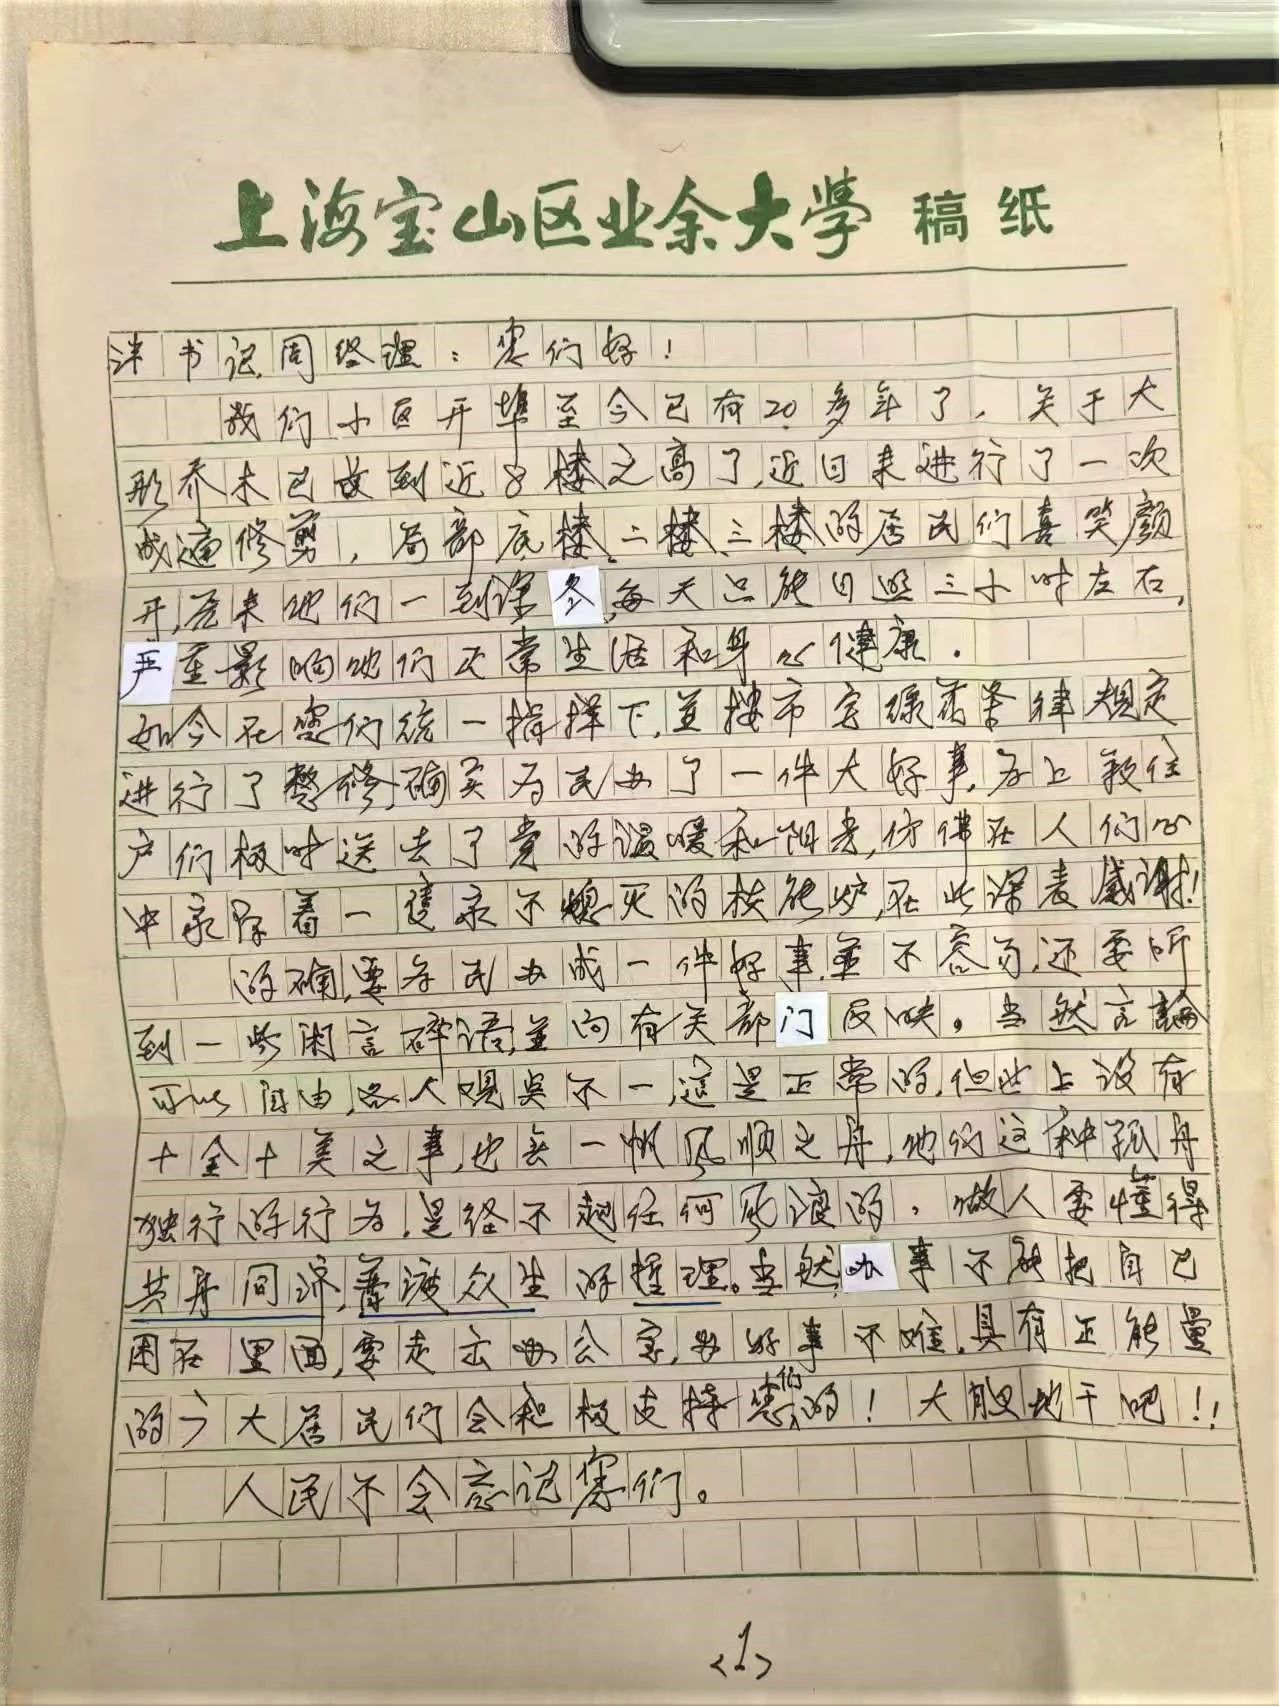 上海宝山区业余大学 稿纸
书记周经理：您们好！
我们小区开埠至今已有20多年了，关于大
形乔木已放到近8楼之高了，近日来进行了一次
修剪，局部底楼、二楼、三楼的居民们喜笑颜
开，原来他们一到深冬，每天只能日照三小时左右，
严重影响他们正常生活和身心健康。
如今在您们统一指挥下，並按市容绿化条律规定
进行了整修，确实为民办了一件大好事，为上款住
户们极时送去了党的温暖和阳光，仿佛在人们心
中永际着一隻永不熄灭的核能炉，在此深表感谢！
的确，要为民办成一件好事，並不容易，还要听
到一些闲言碎语，並向有关部门反映。当然言論
可以自由，各人观点不一，這是正常的，但世上没有
十全十美之事，也无一帆风顺之舟，他们这种孤舟
独行的行为，是经不起任何风浪的，做人要懂得
共舟同济，普渡众生的哲理。当然，办事不能把自己
困在里面，要走出办公室，办好事不难，具有正能量
的广大居民们会积极支持您们的！大胆地干吧！！
人民不会忘记您们。
<1>